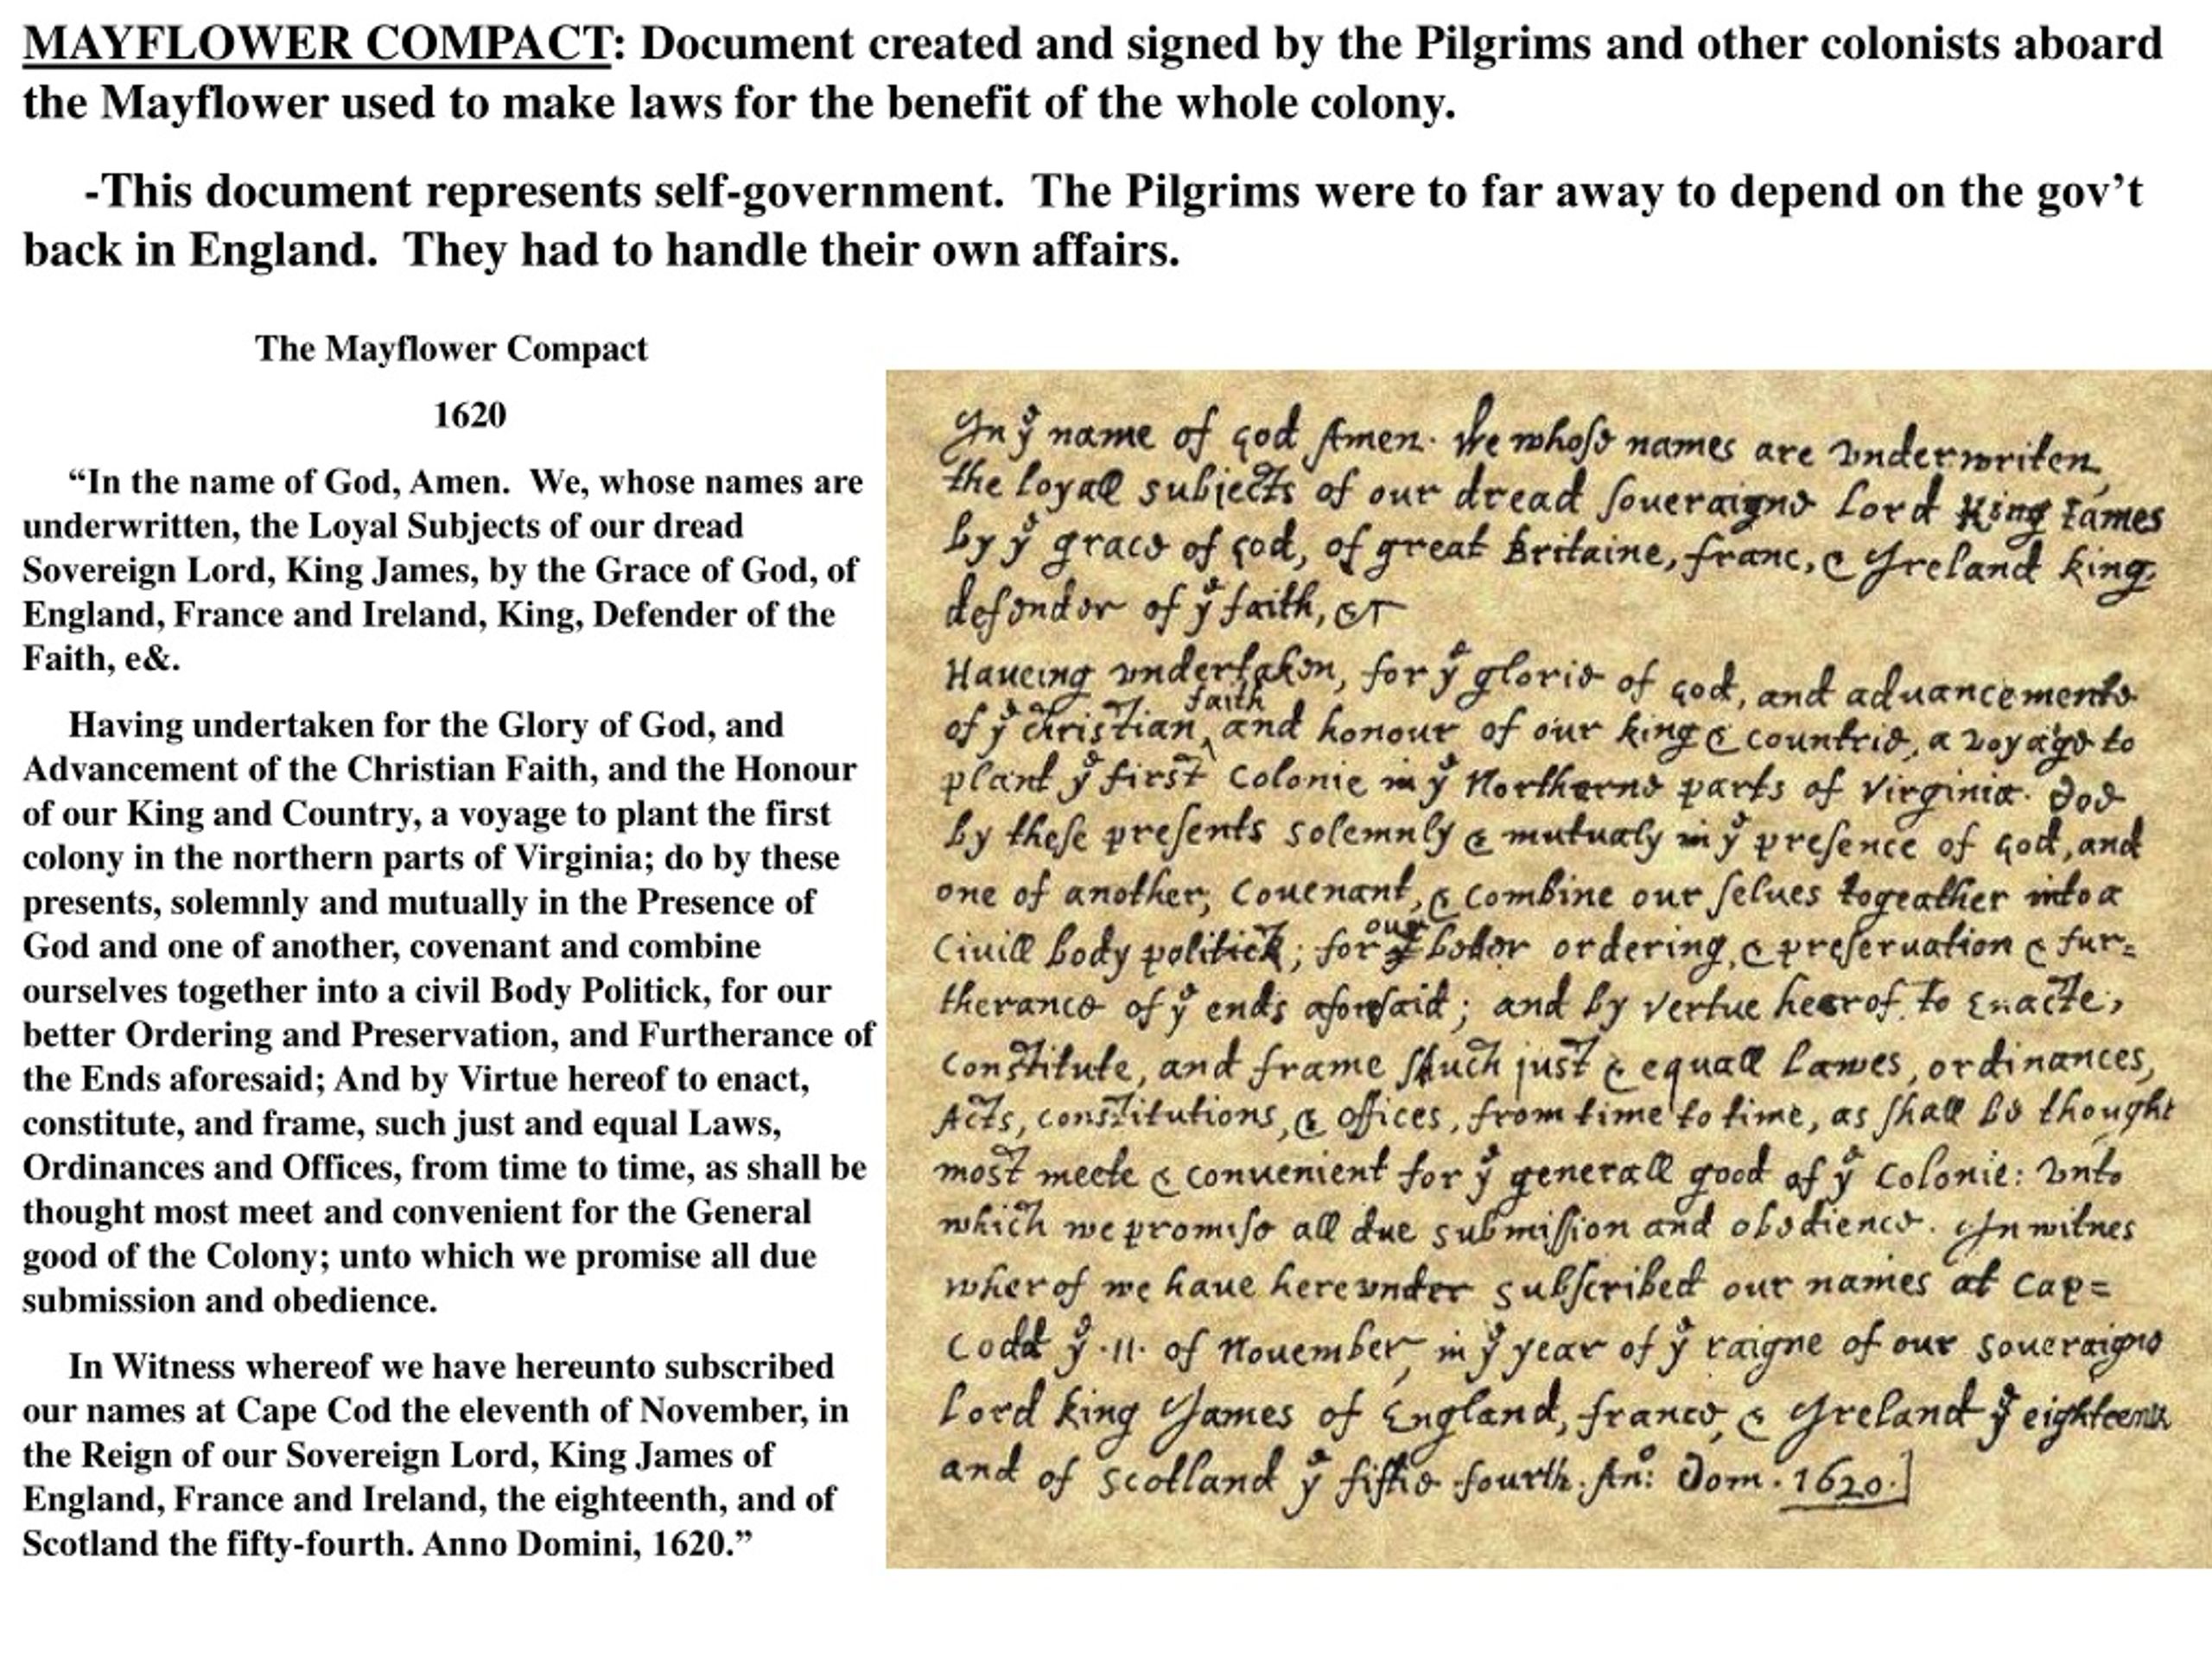 MAYFLOWER COMPACT: Document created and signed by the Pilgrims and other colonists aboard
the Mayflower used to make laws for the benefit of the whole colony.
-This document represents self-government.  The Pilgrims were to far away to depend on the gov’t
back in England.  They had to handle their own affairs.
The Mayflower Compact
1620
“In the name of God, Amen.  We, whose names are
underwritten, the Loyal Subjects of our dread
Sovereign Lord, King James, by the Grace of God, of
England, France and Ireland, King, Defender of the
Faith, e&.
Having undertaken for the Glory of God, and
Advancement of the Christian Faith, and the Honour
of our King and Country, a voyage to plant the first
colony in the northern parts of Virginia; do by these
presents, solemnly and mutually in the Presence of
God and one of another, covenant and combine
ourselves together into a civil Body Politick, for our
better Ordering and Preservation, and Furtherance of
the Ends aforesaid; And by Virtue hereof to enact,
constitute, and frame, such just and equal Laws,
Ordinances and Offices, from time to time, as shall be
thought most meet and convenient for the General
good of the Colony; unto which we promise all due
submission and obedience.
In Witness whereof we have hereunto subscribed
our names at Cape Cod the eleventh of November, in
the Reign of our Sovereign Lord, King James of
England, France and Ireland, the eighteenth, and of
Scotland the fifty-fourth. Anno Domini, 1620.”
In yͤ name of god Amen. We whoſe names are underwriten,
the loyall subjects of our dread ſoueraigne Lord King Iames
by yͤ grace of god, of great Britaine, franc, & Ireland king,
defender of yͤ faith, &c
Haueing undertaken, for yͤ glorie of god, and aduancemente
of yͤ christian faith and honour of our king & countrie, a voyage to
plant yͤ first colonie in yͤ Northerne parts of Virginia. doe
by theſe preſents solemnly & mutualy in yͤ preſence of god, and
one of another, couenant, & combine our ſelues togeather into a
ciuill body politick; for our beter ordering, & preſeruation & fur=
therance of yͤ ends aforeſaid; and by vertue hearof to enacte,
constitute, and frame ſuch just & equall lawes, ordinances,
Acts, constitutions, & offices, from time to time, as ſhall be thought
most meete & conuenient for yͤ generall good of yͤ Colonie: unto
which we promiſe all due submiſſion and obedience. In witnes
wherof we haue hereunder subſcribed our names at Cap=
Codd yͤ .11. of Nouember, in yͤ year of yͤ raigne of our soueraigne
Lord king James of England, france, & Ireland yͤ eighteenth
and of Scotland yͤ fiftie fourth. An°: Dom. 1620.]